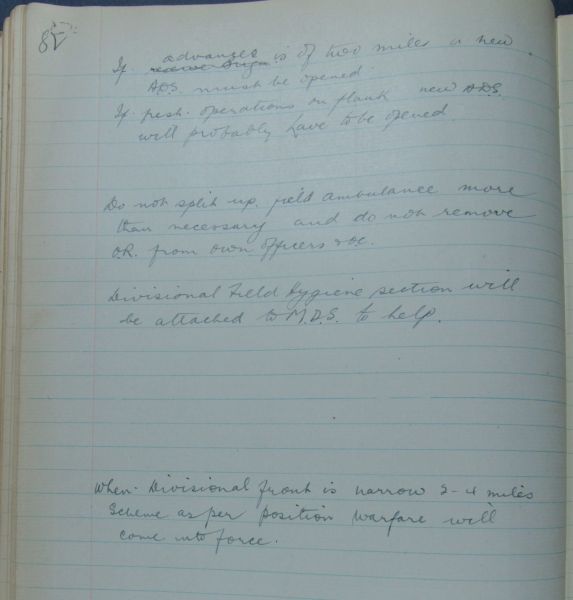 82
If advances is of two miles a new
A.D.S. must be opened.
If fresh operations on flank new A.D.S.
will probably have to be opened.
Do not split up field ambulance more
than necessary and do not remove
O.R. from own officers
Divisional Field Hygiene section will
be attached to M.D.S. to help.
When Divisional front is narrow 2-4 miles
Scheme as per position warfare will
come into force.